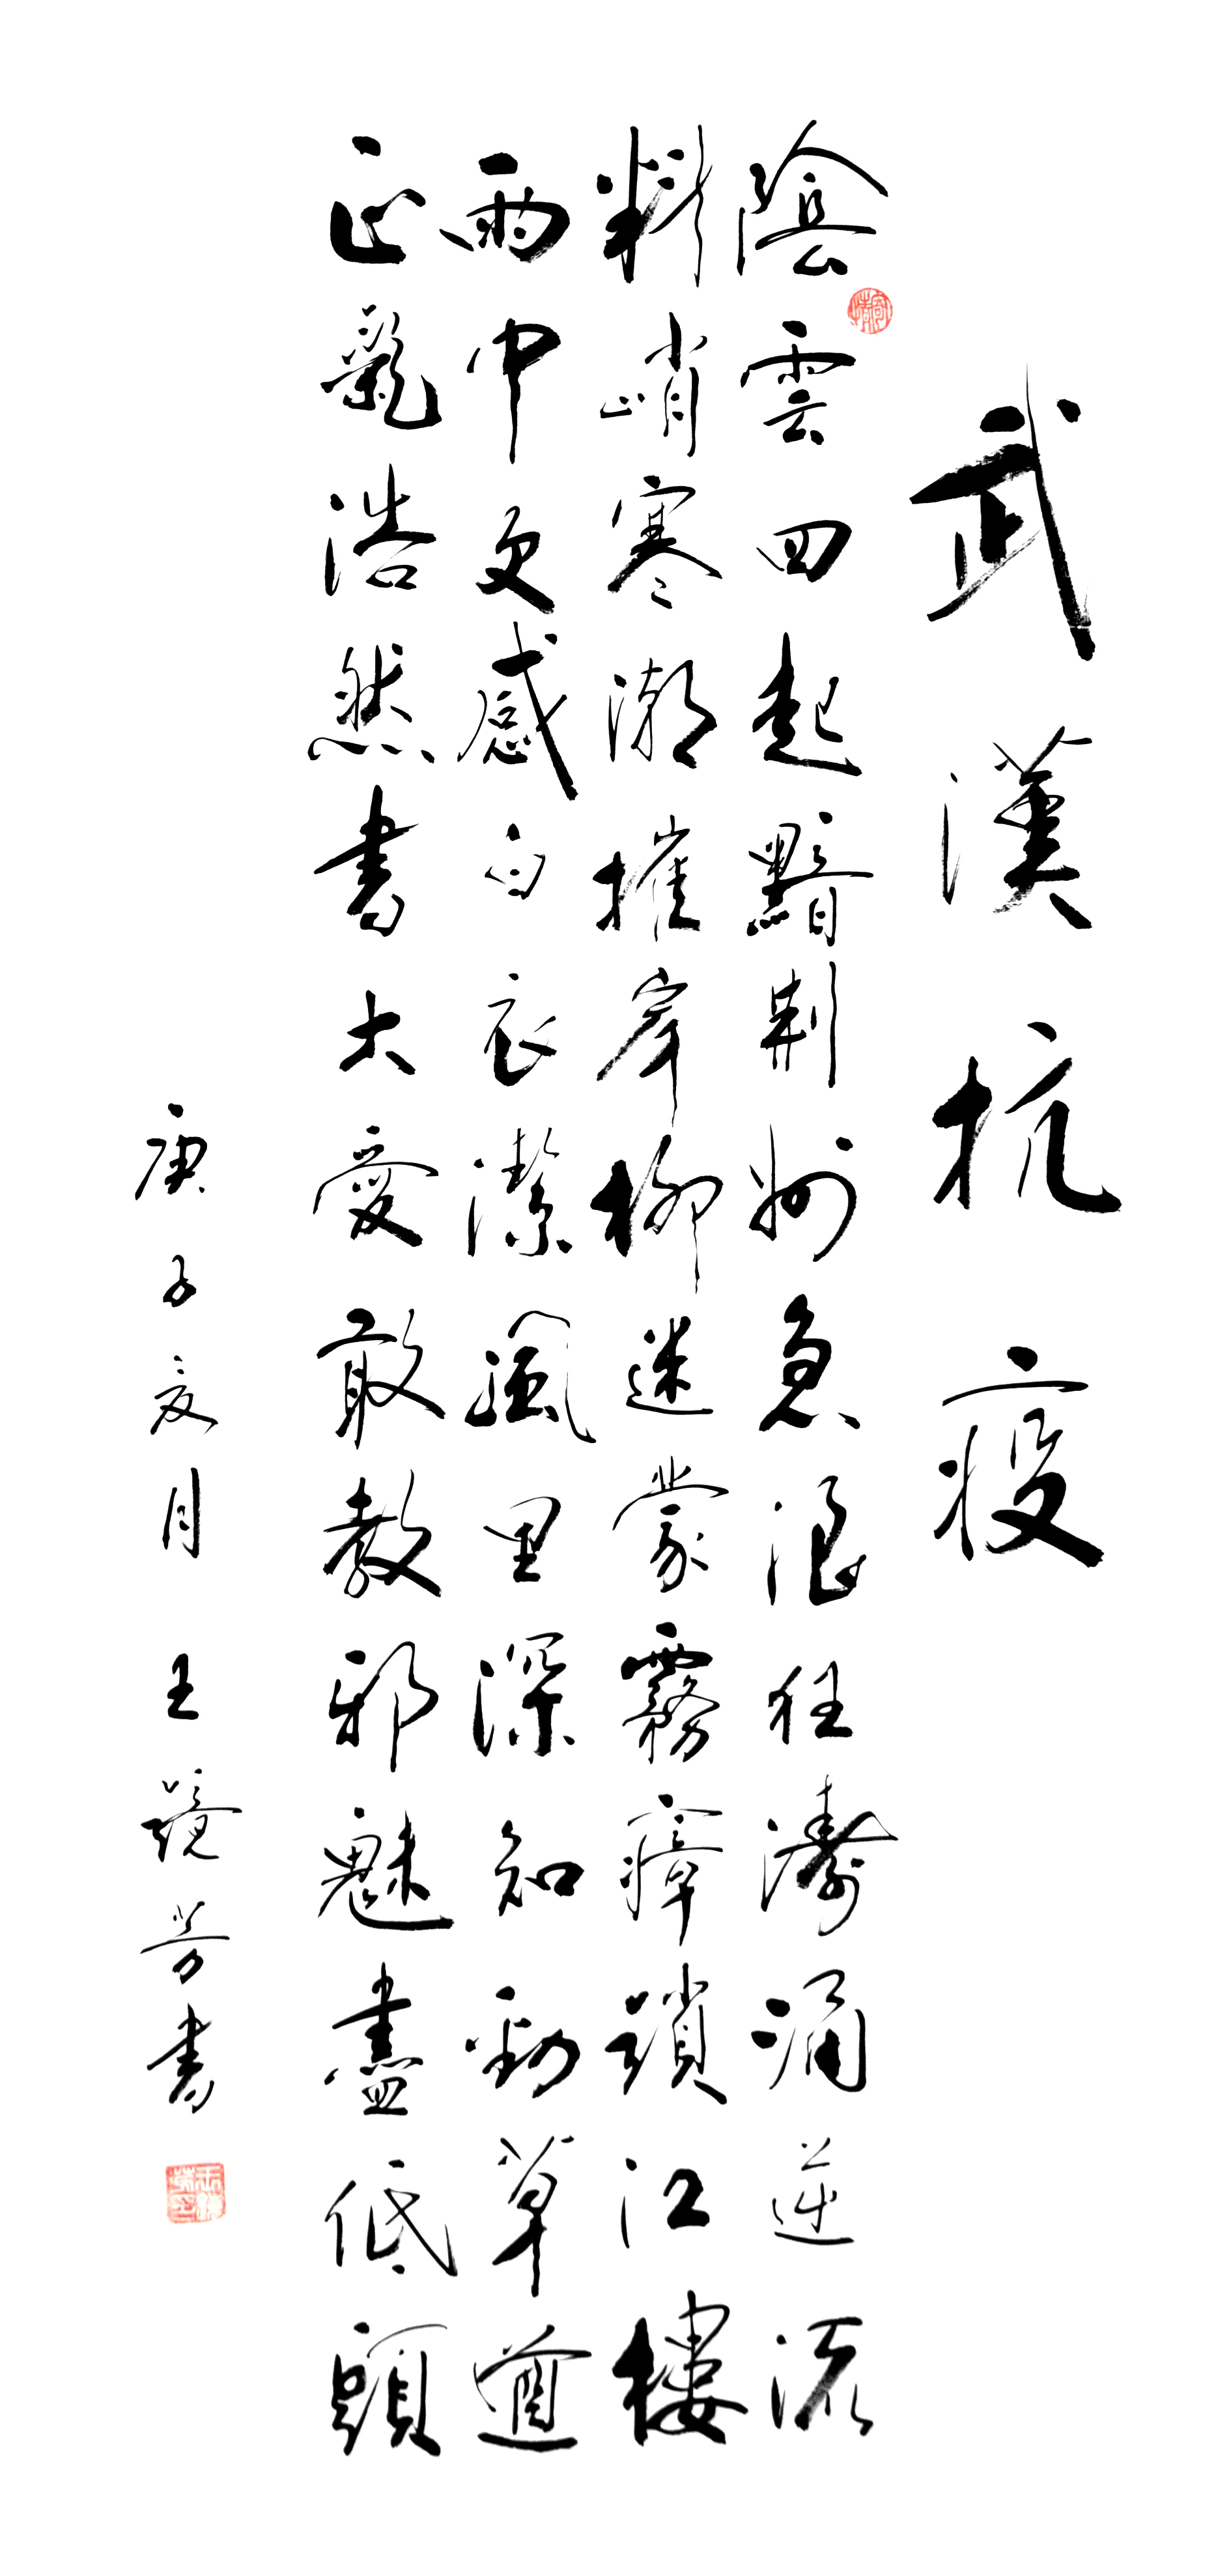 武漢抗疫
陰雲四起黯荆州急浪狂濤涌逆流
料峭寒潮摧岸柳迷蒙霧瘴鎖江樓
雨中更感白衣潔風里深知勁草遒
正氣浩然書大愛敢教邪魅盡低頭
庚子夏月 王鏡芳書